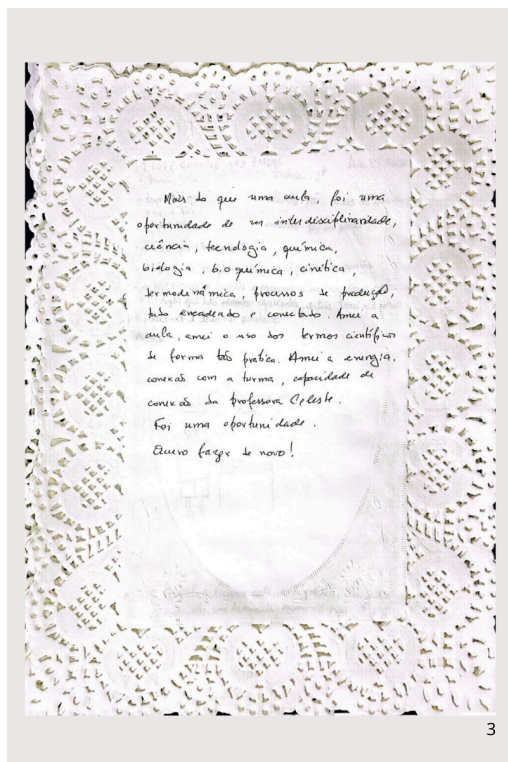 Mais do que uma aula, foi uma
oportunidade de ver interdisciplinaridade,
ciência, tecnologia, química,
biologia, bioquímica, cinética,
termodinâmica, processos de produção,
tudo encadeado e conectado. Amei a
aula, amei o uso dos termos científicos
de forma tão prática. Amei a energia,
conexão com a turma, capacidade de
conexão da professora Celeste.
Foi uma oportunidade.
Quero fazer de novo!
3